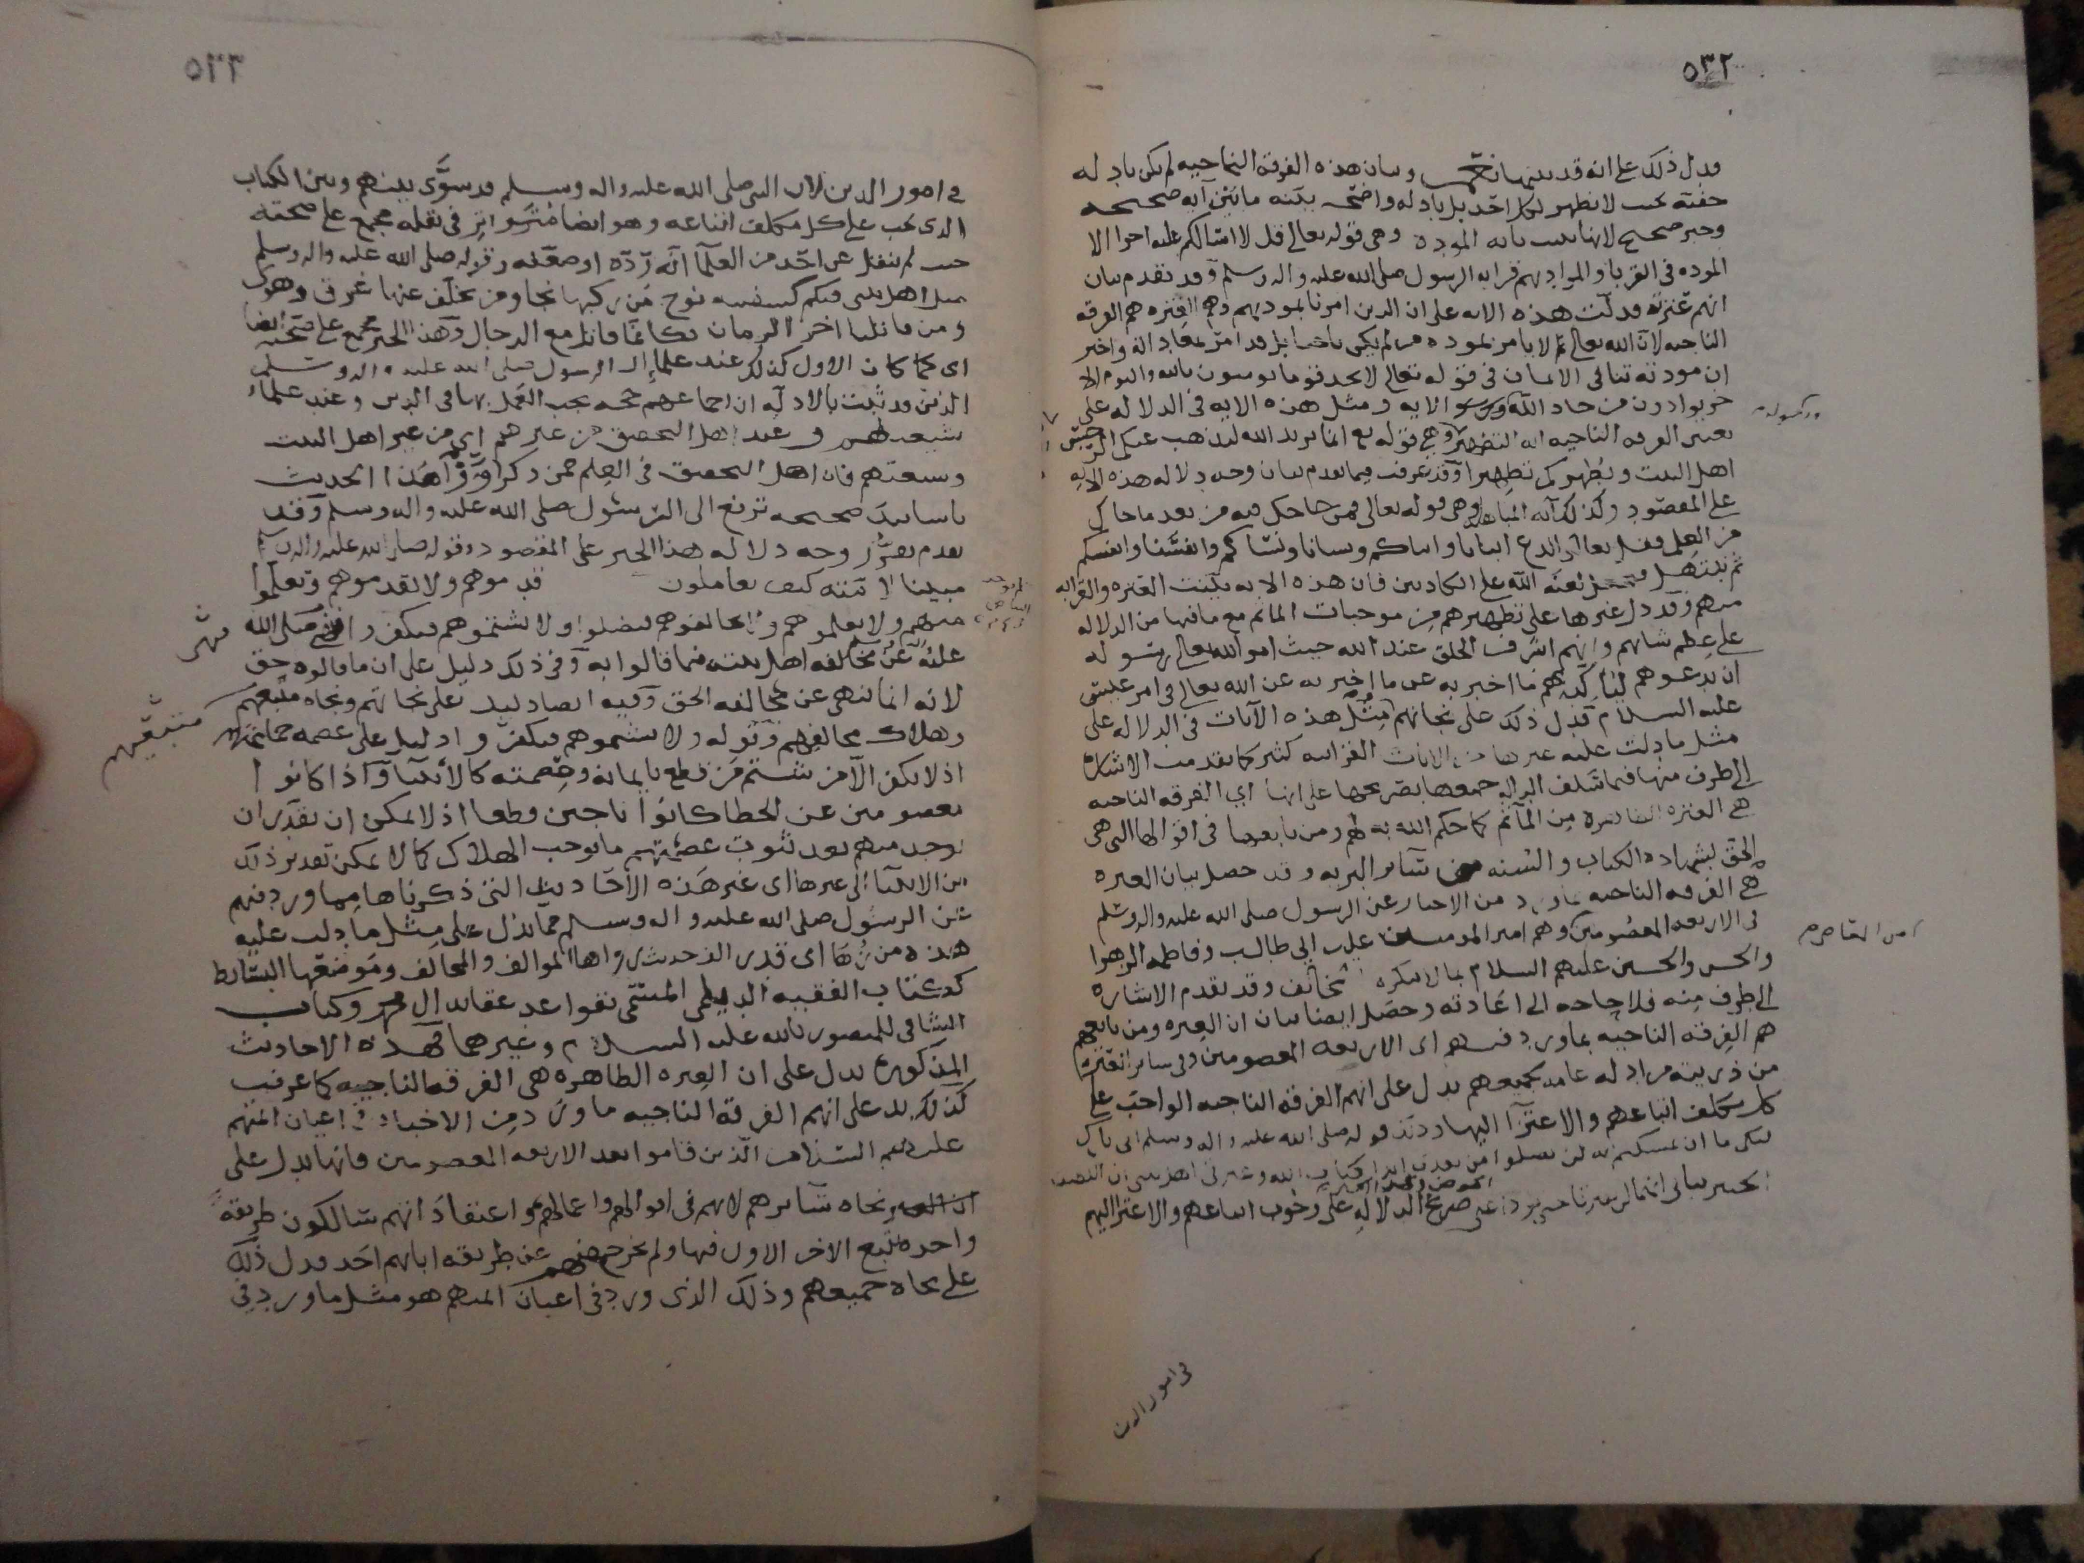 ٥٣٢
فدل ذلك على انه قد بينها وبيان هذه الفرقة الناجيه لم يكن بادله
خفيّه بحيث لا تظهر لكل احد بل بادله واضحه بيّنه ما بين آيه صحيحه
وخبر صحيح لانها بينت بآيه المودة وهي قوله تعالى قل لا اسالكم عليه اجرا الا
الموده في القربا والمراد بهم قرابه الرسول صلى الله عليه واله وسلم وقد تقدم بيان
انهم عترته فدلّت هذه الايه على ان الذين امرنا بمودتهم وهم العتره هم الفرقه
الناجيه لانّ الله تعالى لا يامر بموده من لم يكن ناجيا بل قد امر بمعاداته واخبر
ان مودته تنافي الايمان في قوله تعالى لا تجد قوما يومنون بالله واليوم الاخر
يوادون من حاد الله ورسوله الايه ومثل هذه الايه في الدلاله على
ورسوله
تعيين الفرقه الناجيه ايه التطهير وهي قوله تع انما يريد الله ليذهب عنكم الرجس
اهل البيت ويُطهركم تطهيرا وقد عرفت فيما تقدم بيان وجه دلاله هذه الآيه
على المقصود وكذلك آيه المباهله وهي قوله تعالى فمن حاجك فيه من بعد ما جاك
من العلم فقل تعالوا ندع ابنانا وابناكم ونسانا ونساكم وانفسنا وانفسكم
ثم نبتهل فنجعل لعنة الله على الكاذبين فان هذه الايه بيّنت العتره والقرابه
منهم وقد دل غيرها على تطهيرهم من موجبات المآثم مع ما فيها من الدلاله
على عظم شانهم وانهم اشرف الخلق عند الله حيث امر الله تعالى رسوله
ان يدعوهم ليتاكد بهم ما اخبر به عن الله تعالى في امر عيسى
عليه السلام فدل ذلك على نجاتهم مثل هذه الآيات في الدلاله على
مثل ما دلت عليه غيرها من الايات القرانيه كثير كما تقدمت الاشاره
الى طرف منها فيما سلف الدال جميعها بصريحها على انها اي الفرقه الناجيه
هي العتره الطاهره من المآثم كما حكم الله به لهم ومن تابعها في اقوالها التي هي
الحق بشهادة الكتاب والسنه من سائر البريه وقد حصل بيان العتره
هي الفرقه الناجيه بما ورد من الاخبار عن الرسول صلى الله عليه واله وسلم
في الاربعه المعصومين وهم امير المومنين علي بن ابي طالب وفاطمه الزهرا
والحسن والحسين عليهم السلام بما لا ينكره مخالف وقد تقدم الاشاره
الى طرف منه فلا حاجه الى اعادته وحصل ايضا بيان ان العتره ومن تابعهم
هم الفرقه الناجيه بما ورد فيهم اي الاربعه المعصومين وفي سائر العتره
من ذريته من ادله عامه لجميعهم تدل على انهم الفرقه الناجيه الواجب على
كل مكلف اتباعهم والاعتزا اليها وذلك قوله صلى الله عليه واله وسلم اني تارك
فيكم ما ان تمسكتم به لن تضلوا من بعدي ابدا كتاب الله وعترتي اهل بيتي ان اللطيف
الخبير نباني انهما لن يفترقا حتى يردا علي الحوض وهذا الخبر صريح الدلاله على وجوب اتباعهم والاعتزا اليهم
في امور الدين
٥٣٣
في امور الدين لان النبي صلى الله عليه واله وسلم قد سوّى بينهم وبين الكتاب
الذي يجب على كل مكلف اتباعه وهو ايضا مُتَواتِر في نقله مجمع على صحته
حيث لم ينقل عن احد من العلما انّه ردّه او ضعّفه وقوله صلى الله عليه واله وسلم
مثل اهل بيتي فيكم كسفينه نوح من ركبها نجا ومن تخلّف عنها غرق وهوى
ومن قاتلنا اخر الزمان فكانما قاتل مع الدجال وهذا الخبر مجمع على صحته ايضا
اي كما كان الاول كذلك عند علماء ال الرسول صلى الله عليه واله وسلم
الذين قد ثبت بالادله ان اجماعهم حجه يجب العمل بها في الدين وعند علماء
شيعتهم وعند اهل التحقيق من غيرهم اي من غير اهل البيت
وشيعتهم فان اهل التحقيق في العلم ممن ذكر رووا هذا الحديث
باسانيد صحيحه ترفع الى الرسول صلى الله عليه واله وسلم وقد
تقدم تقرير وجه دلاله هذا الخبر على المقصود وقوله صلى الله عليه واله وسلم
مبينا لامته كيف يعاملون قدموهم ولا تقدموهم وتعلّموا
منهم ولا تعلموهم ولا تخالفوهم فتضلوا ولا تشتموهم فتكفروا صلى الله
عليه عن مخالفه اهل بيته فيما قالوا به وفي ذلك دليل على ان ما قالوه حق
لانه انما نهى عن مخالفه الحق وفيه ايضا دليل على نجاتهم ونجاه متبعهم
متبعيهم
وهلاك مخالفهم وقوله ولا تشتموهم فتكفروا دليل على عصمه جماعتهم
اذ لا يكفر الّا من شتم من قطع بايمانه وعصمته كالأنبيا واذا كانوا
معصومين عن الخطا كانوا ناجين قطعا اذ لا يمكن ان يقدّر ان
يوجد منهم بعد ثبوت عصمتهم ما يوجب الهلاك كما لا يمكن تقدير ذلك
من الانبيا الى غيرها اي غير هذه الأحاديث التي ذكرناها مما ورد فيهم
عن الرسول صلى الله عليه واله وسلم مما يدل على مثل ما دلت عليه
هذه من زُهَا اي قدر الف حديث رواها الموالف والمخالف وموضعها البسائط
ككتاب الفقيه الديلمي المسمّى بقواعد عقايد ال محمد وكتاب
الشافي للمنصور بالله عليه السلام وغيرهما فهذه الاحاديث
المذكوره تدل على ان العتره الطاهره هي الفرقه الناجيه كما عرفت
كذلك يدل على انهم الفرقه الناجيه ما ورد من الاخبار في اعيان ائمتهم
عليهم السلام الّذين قاموا بعد الاربعه المعصومين فانها تدل على
نجاه سائرهم لانهم في اقوالهم واعمالهم واعتقاد انهم سالكون طريقةً
واحده يتبع الاخر الاول فيها ولم يخرج منهم عن طريقه ابائهم احد فدل ذلك
على نجاه جميعهم وذلك الذي ورد في اعيان ائمتهم هو مثل ما ورد في